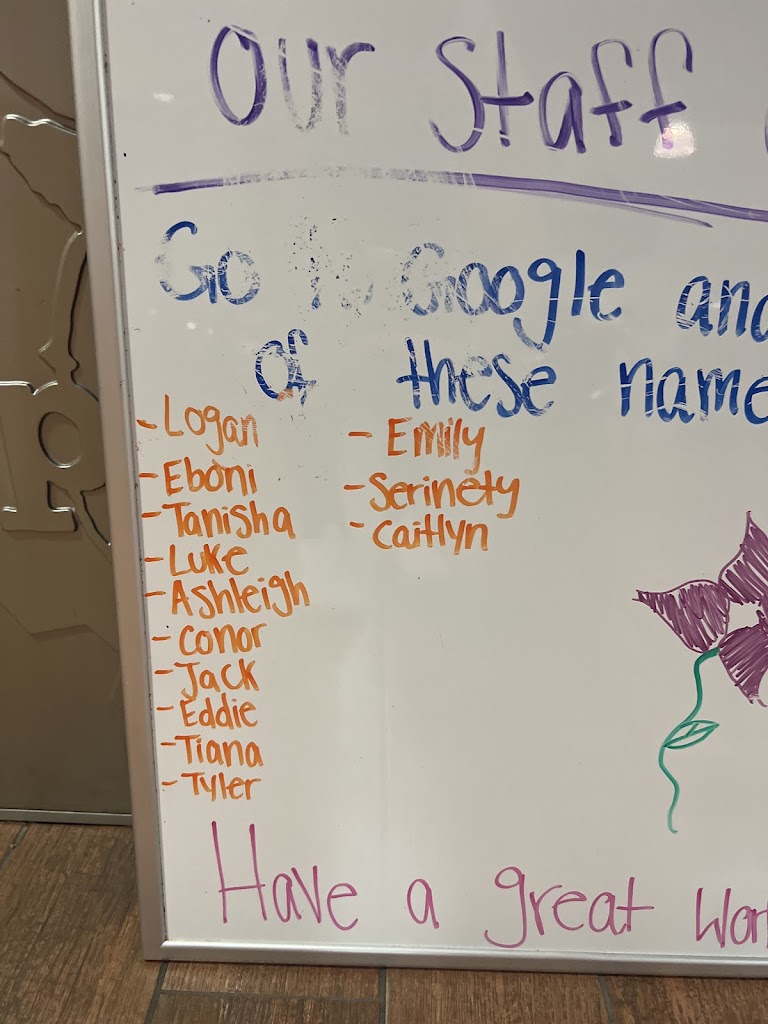 Our Staff
Go to Google and
of these name
- Logan
- Eboni
- Tanisha
- Luke
- Ashleigh
- Conor
- Jack
- Eddie
- Tiana
- Tyler
- Emily
- Serinety
- Caitlyn
Have a great Wor